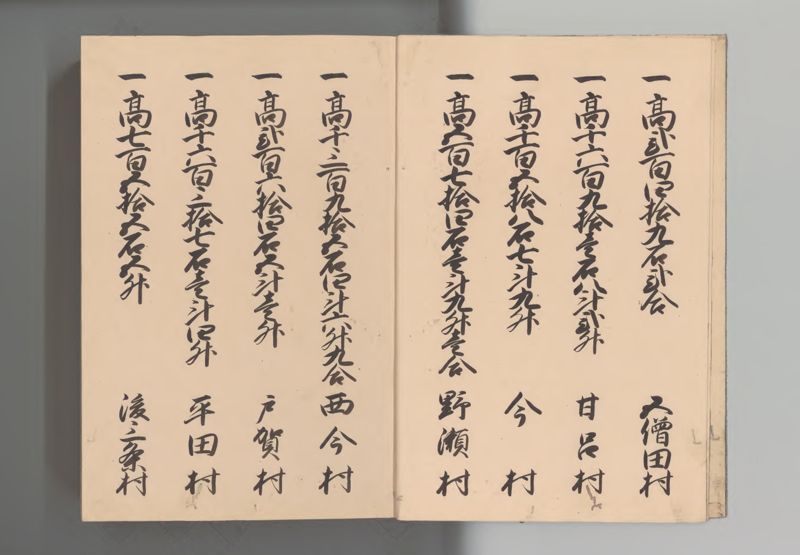 一高弐百四拾九石弐合 五僧田村
一高千六百九拾壱石八斗弐升 甘呂村
一高千百五拾八石七斗九升 今村
一高五百七拾四石壱斗九升壱合 野瀬村
一高千三百九拾五石四斗六升九合 西今村
一高弐百六拾四石五斗壱升 戸賀村
一高千六百三拾七石壱斗四升 平田村
一高七百五拾五石五升 後三条村